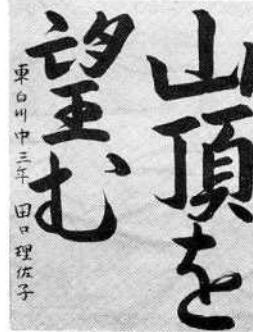 山頂を
望む
東白川中三年 田口理佐子